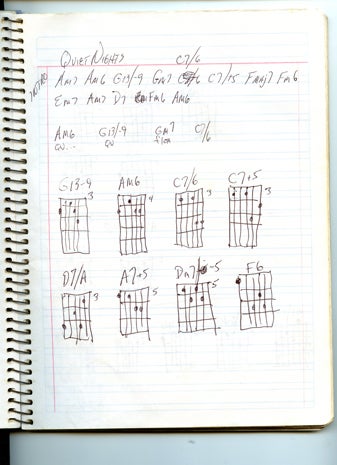 Quiet Nights C7/6
INTRO
Am7 Am6 G13/-9 Gm7 C7/6 C7/+5 Fmaj7 Fm6
Em7 Am7 D7 Fm6 Am6
Am6 G13/-9 Gm7 C7/6
Qu... Qu
G13-9 Am6 C7/6 C7+5
3 4 3 3
D7/A A7+5 Dm7/-5 F6
3 5 5